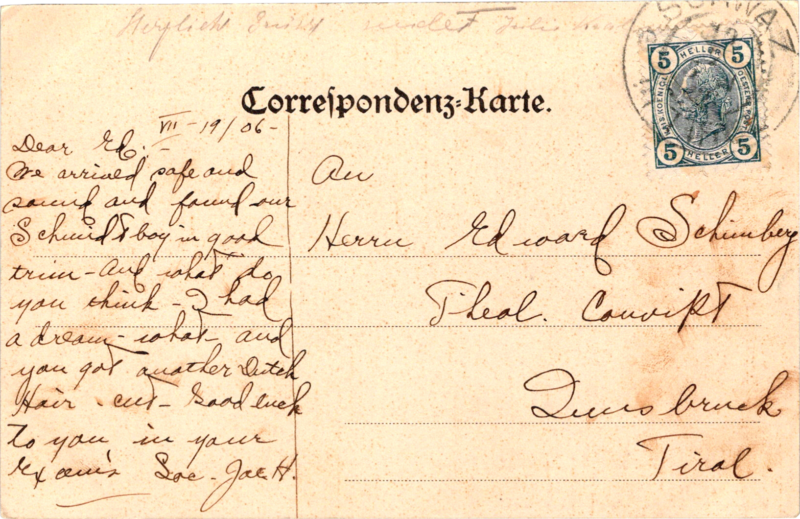 Herzlichst Grüsst
Correspondenz-Karte.
VII-19/06-
Dear Ed.-
We arrived safe and
sound and found our
Schmidt boy in good
trim - And what do
you think - I had
a dream - what - and
you got another Dutch
Hair - cut - Good luck
to you in your
Exam's Soc. Joe H.
An
Herrn Edward Schimberg
Theol. Convikt
Innsbruck
Tirol.
SCHWAZ
5 HELLER 5
5 HELLER 5